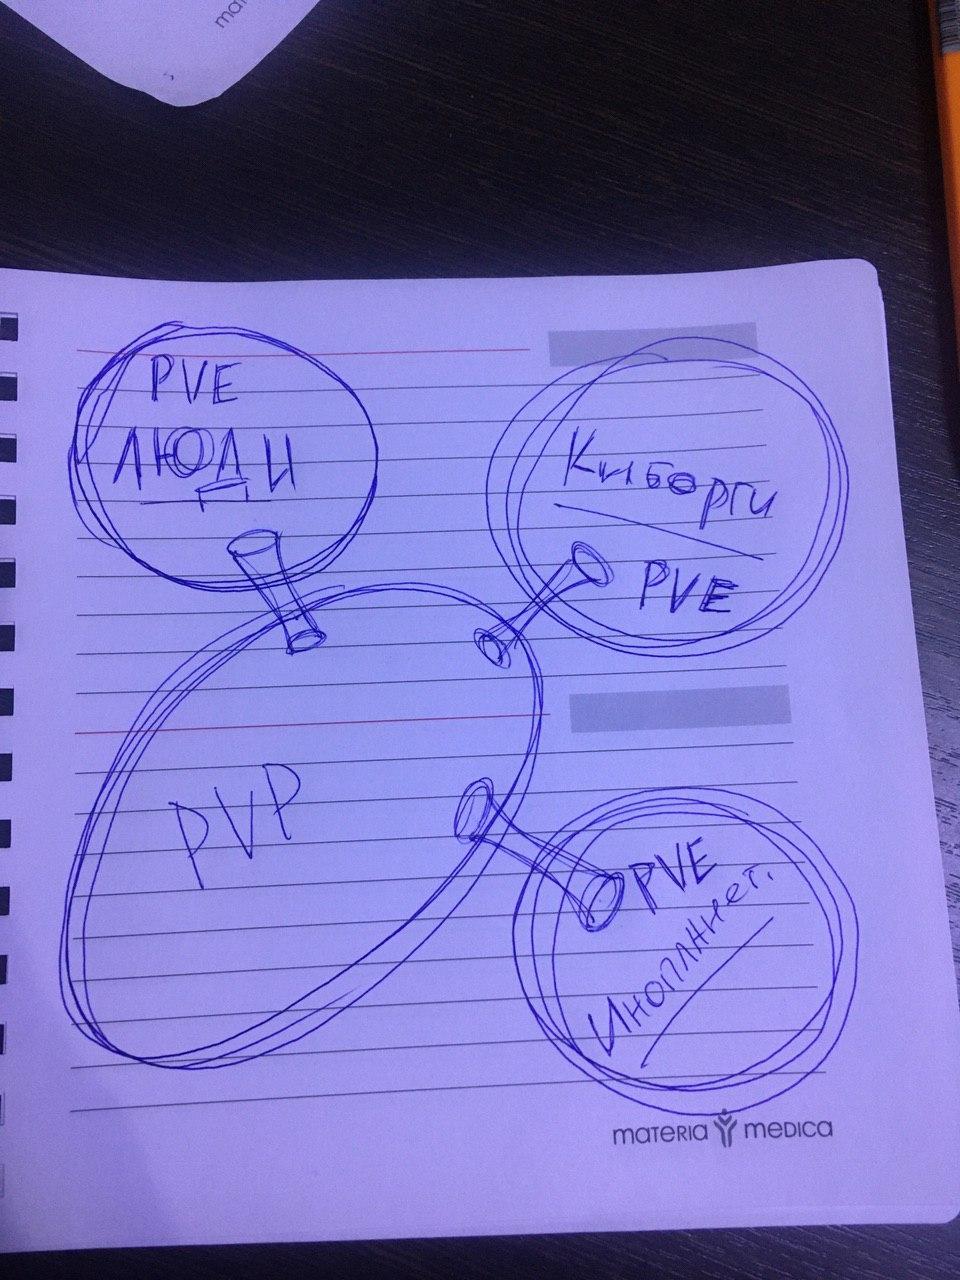 mat
PVE
ЛЮДИ
Киборги
PVE
PVP
PVE
Иноплннет.
materia medica